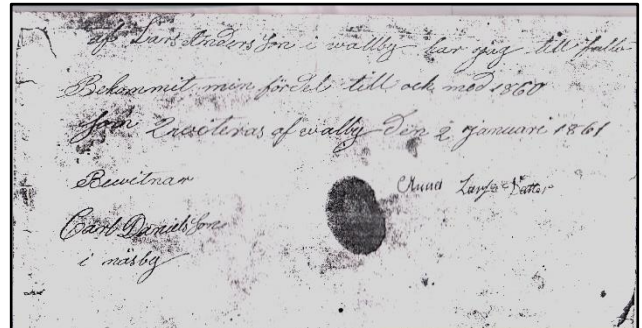 af Lars Anders son i wallby har jag till fullo
Bekommit min fördel till och med 1860
som Qvviteras af wallby Den 2 januari 1861
Bewitnar
Anna Larsdotter
Carl Daniels son
i näsby